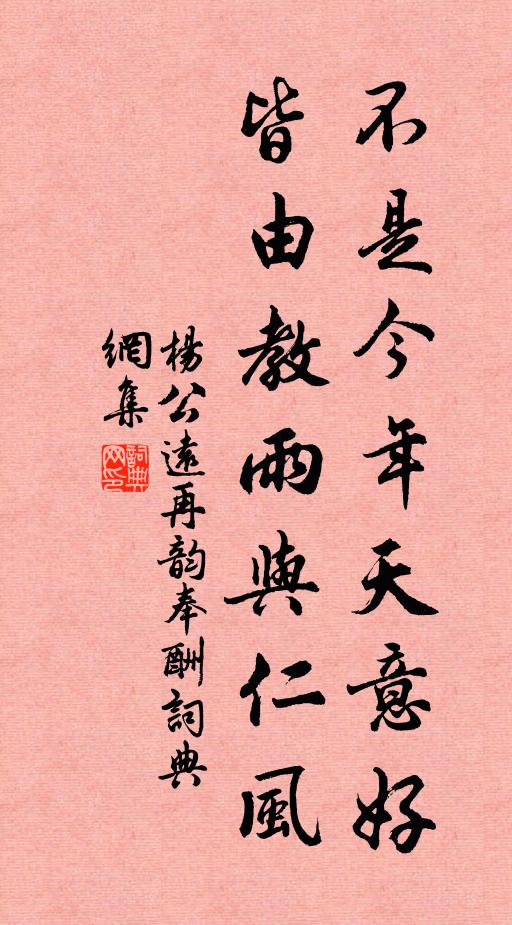 不是今年天意好
皆由教雨與仁風
楊公遠再韵奉酬詞典
網集
詞典
网印